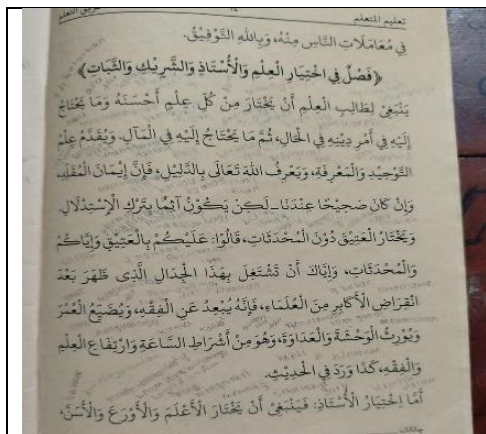 تعليم المتعلم ١٤
فِي مُعَامَلَاتِ النَّاسِ مِنْهُ، وَبِاللهِ التَّوْفِيْقُ.
﴿فَصْلٌ فِي اخْتِيَارِ الْعِلْمِ وَالْأُسْتَاذِ وَالشَّرِيْكِ وَالثَّبَاتِ﴾
يَنْبَغِيْ لِطَالِبِ الْعِلْمِ أَنْ يَخْتَارَ مِنْ كُلِّ عِلْمٍ أَحْسَنَهُ وَمَا يَحْتَاجُ
إِلَيْهِ فِي أَمْرِ دِيْنِهِ فِي الْحَالِ، ثُمَّ مَا يَحْتَاجُ إِلَيْهِ فِي الْمَآلِ. وَيُقَدِّمُ عِلْمَ
التَّوْحِيْدِ وَالْمَعْرِفَةِ، وَيَعْرِفُ اللهَ تَعَالَى بِالدَّلِيْلِ، فَإِنَّ إِيْمَانَ الْمُقَلِّدِ،
وَإِنْ كَانَ صَحِيْحًا عِنْدَنَا - لَكِنْ يَكُوْنُ آثِمًا بِتَرْكِ الْإِسْتِدْلَالِ.
وَيَخْتَارُ الْعَتِيْقَ دُوْنَ الْمُحْدَثَاتِ، قَالُوْا: عَلَيْكُمْ بِالْعَتِيْقِ وَإِيَّاكُمْ
وَالْمُحْدَثَاتِ، وَإِيَّاكَ أَنْ تَشْتَغِلَ بِهَذَا الْجِدَالِ الَّذِى ظَهَرَ بَعْدَ
انْقِرَاضِ الْأَكَابِرِ مِنَ الْعُلَمَاءِ، فَإِنَّهُ يُبْعِدُ عَنِ الْفِقْهِ، وَيُضَيِّعُ الْعُمْرَ
وَيُوْرِثُ الْوَحْشَةَ وَالْعَدَاوَةَ، وَهُوَ مِنْ أَشْرَاطِ السَّاعَةِ وَارْتِفَاعِ الْعِلْمِ
وَالْفِقْهِ، كَذَا وَرَدَ فِي الْحَدِيْثِ.
أَمَّا اخْتِيَارُ الْأُسْتَاذِ: فَيَنْبَغِيْ أَنْ يَخْتَارَ الْأَعْلَمَ وَالْأَوْرَعَ وَالْأَسَنَّ،